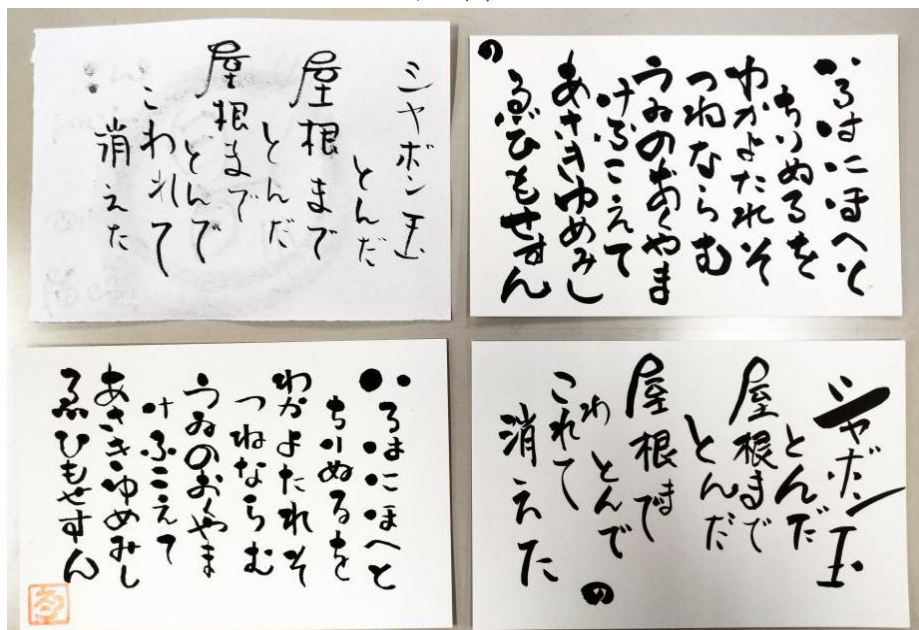 シャボン玉
とんだ
屋根まで
とんだ
屋根まで
とんで
こわれて
消えた
いろはにほへと
ちりぬるを
わかよたれそ
つねならむ
うゐのおくやま
けふこえて
あさきゆめみし
ゑひもせすん
の
いろはにほへと
ちりぬるを
わかよたれそ
つねならむ
うゐのおくやま
けふこえて
あさきゆめみし
ゑひもせすん
シャボン玉
とんだ
屋根まで
とんだ
屋根まで
とんで
こわれて
消えた
の